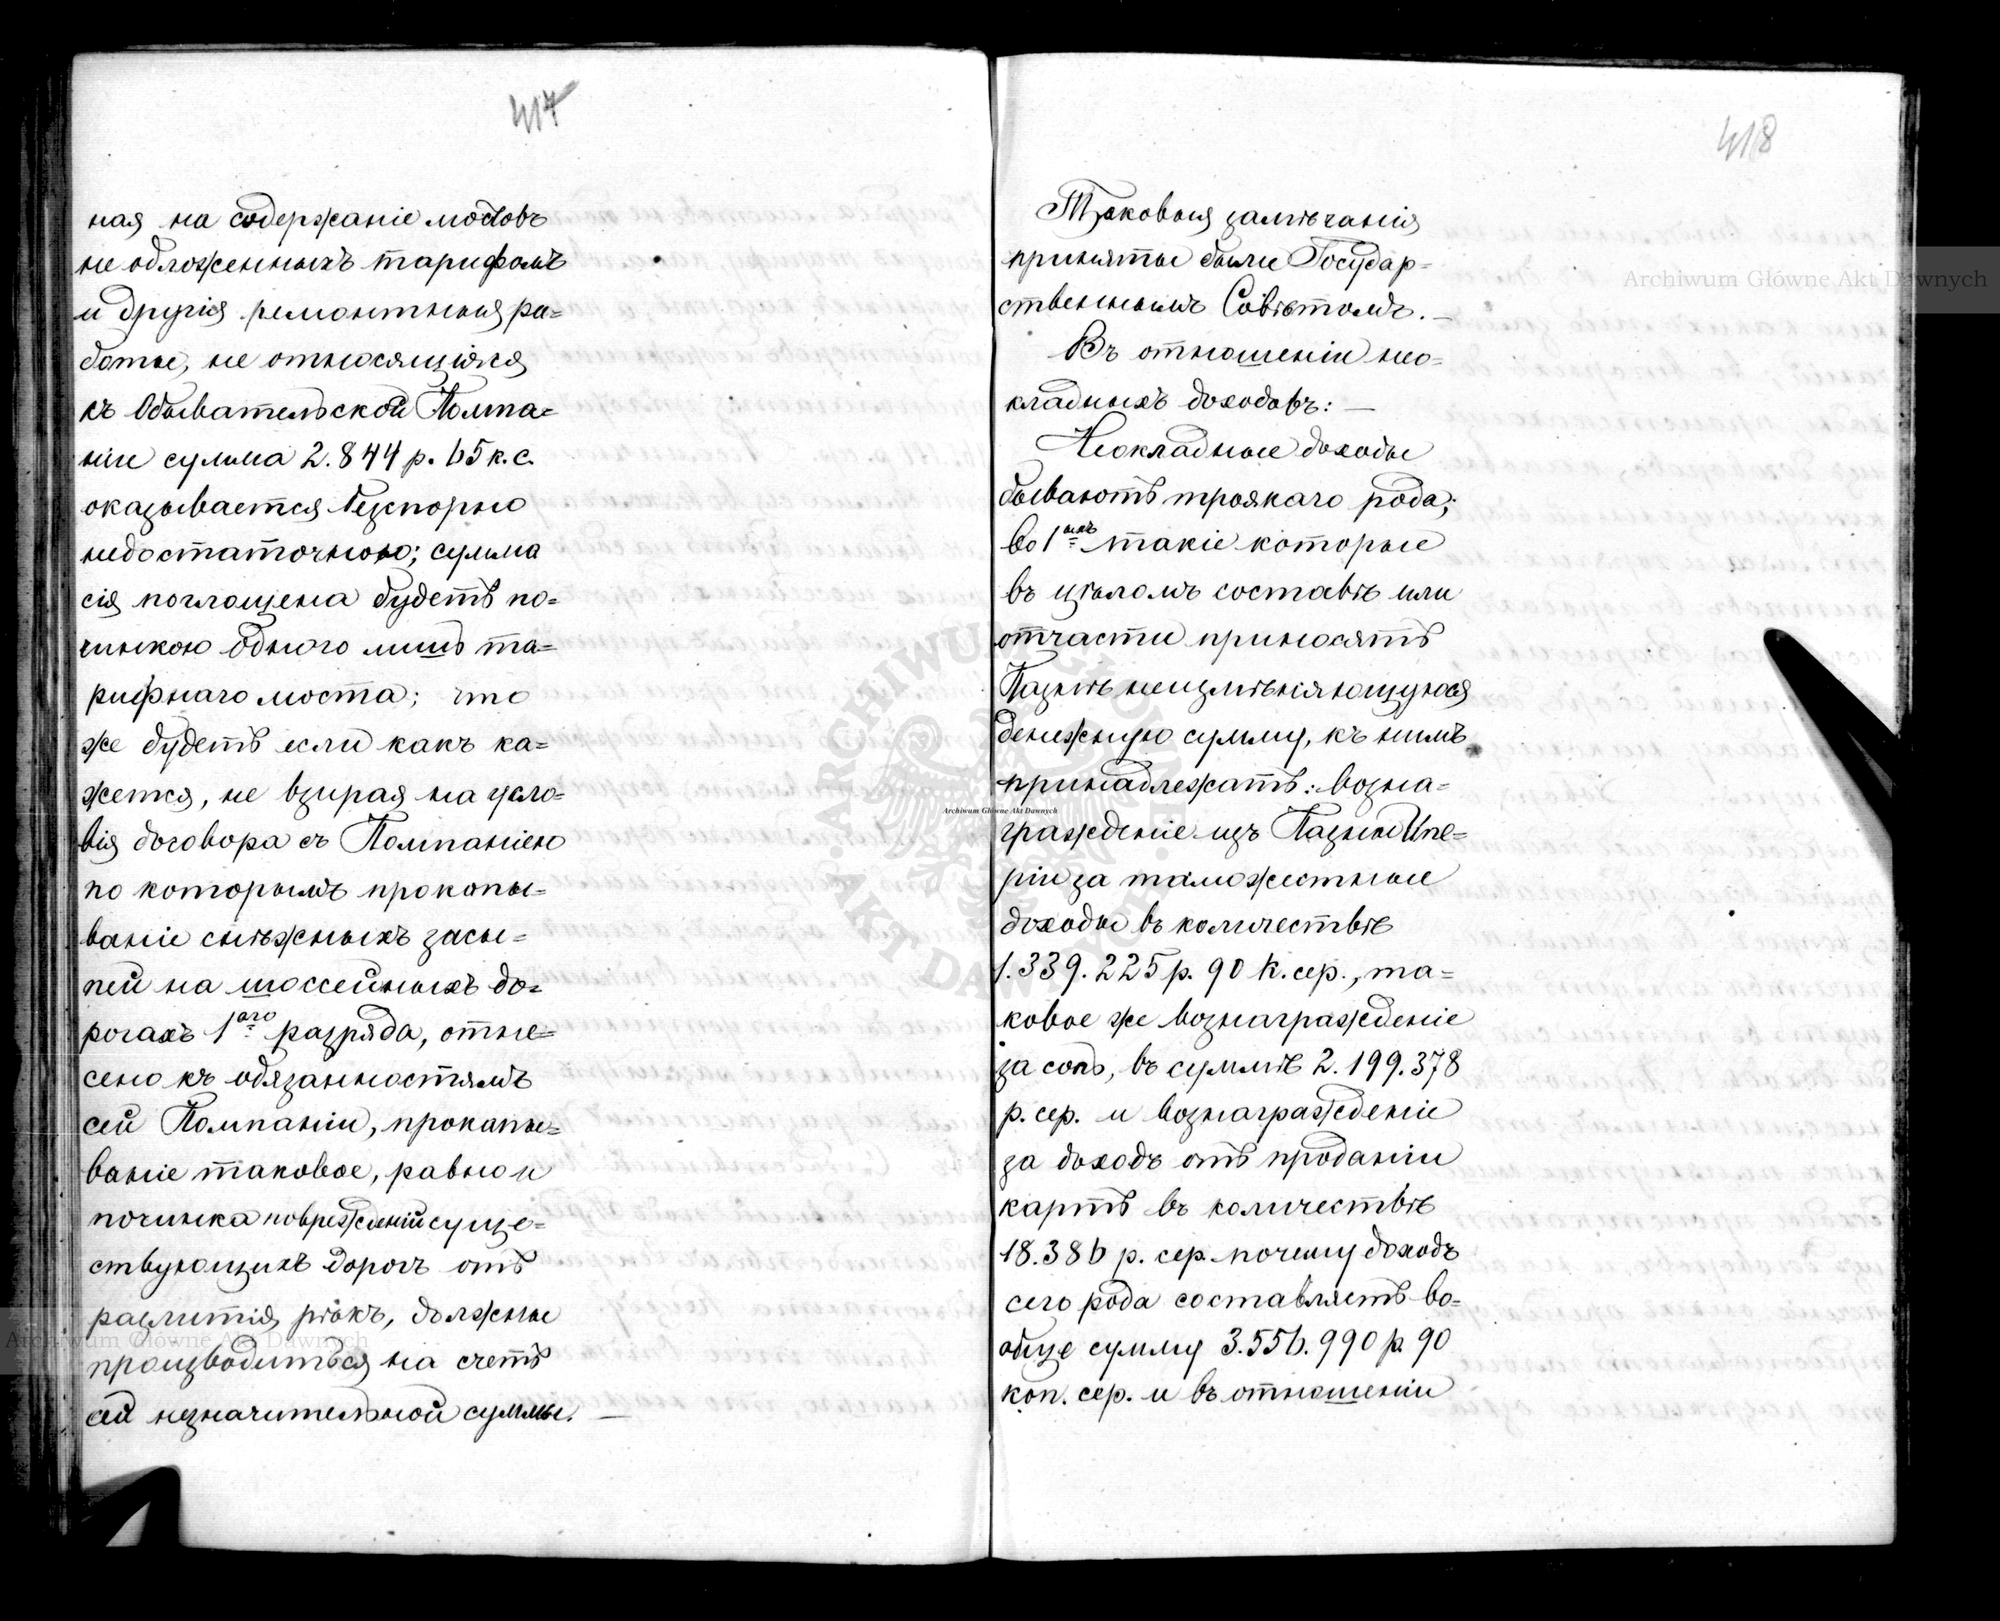 417
ная на содержаніе мостовъ
не обложенныхъ тарифомъ
и другія ремонтныя ра=
боты, не относящіяся
къ Обывательской Компа=
ніи сумма 2.844 р. 65 к. с.
оказывается безспорно
недостаточною; сумма
сія поглощена будетъ по=
чинкою одного лишь та=
рифнаго моста; что
же будетъ если какъ ка=
жется, не взирая на усло=
вія договора съ Компаніею
по которымъ прокопы=
ваніе снѣжныхъ засы=
пей на шоссейныхъ до=
рогахъ 1аго разряда, отне=
сено къ обязанностямъ
сей Компаніи, прокапы=
ваніе таковое, равно и
починка поврежденій суще=
ствующихъ дорогъ отъ
разлитія рѣкъ, должны
производиться на счетъ
сей незначительной суммы. —
418
Таковыя замѣчанія
приняты были Государ=
ственнымъ Совѣтомъ. —
Въ отношеніи нео=
кладныхъ доходовъ: —
Неокладные доходы
бываютъ троякаго рода;
во 1ыхъ такіе которые
въ цѣломъ составѣ или
отчасти приносятъ
Казнѣ неизмѣняющуюся
денежную сумму, къ нимъ
принадлежатъ: возна=
гражденіе изъ Казны Импе=
ріи за таможестные
доходы въ количествѣ
1.339.225 р. 90 к. сер., та=
ковое же вознагражденіе
за соль, въ суммѣ 2.199.378
р. сер. и вознагражденіе
за доходъ отъ проданіи
картъ въ количествѣ
18.386 р. сер. почему доходъ
сего рода составляетъ во=
обще сумму 3.556.990 р. 90
коп. сер. и въ отношеніи
Archiwum Główne Akt Dawnych
Archiwum Główne Akt Dawnych
Archiwum Główne Akt Dawnych